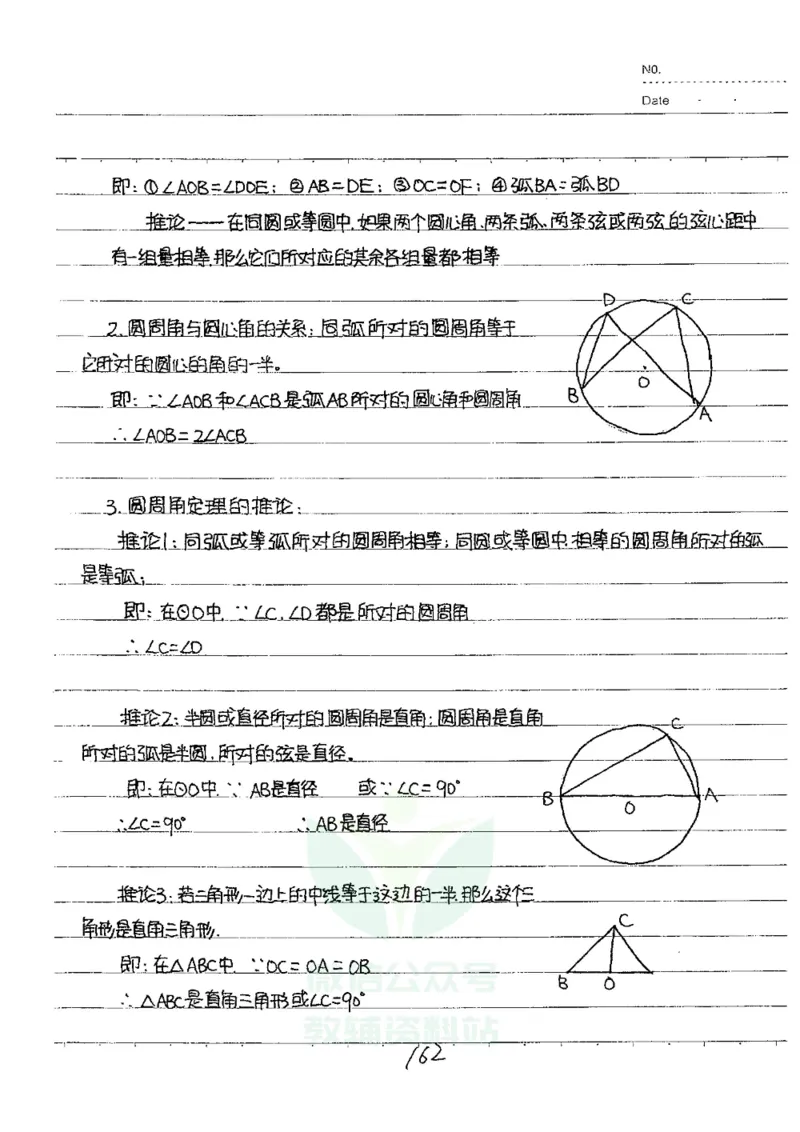 NO.
Date
即：①∠AOB=∠DOE；②AB=DE；③OC=OF；④弧BA=弧BD
推论——在同圆或等圆中，如果两个圆心角、两条弧、两条弦或两弦的弦心距中
有一组量相等，那么它们所对应的其余各组量都相等
D C
2.圆周角与圆心角的关系：同弧所对的圆周角等于
它所对的圆心的角的一半。
O
B
即：∵∠AOB和∠ACB是弧AB所对的圆心角和圆周角
A
∴∠AOB=2∠ACB
3.圆周角定理的推论：
推论1：同弧或等弧所对的圆周角相等；同圆或等圆中，相等的圆周角所对的弧
是等弧；
即：在⊙O中，∵∠C，∠D都是所对的圆周角
∴∠C=∠D
推论2：半圆或直径所对的圆周角是直角；圆周角是直角
C
所对的弧是半圆，所对的弦是直径。
即：在⊙O中，∵AB是直径 或∵∠C=90°
B O A
∴∠C=90° ∴AB是直径
推论3：若三角形一边上的中线等于这边的一半，那么这个三
C
角形是直角三角形.
即：在△ABC中，∵OC=OA=OB
B O
∴△ABC是直角三角形或∠C=90°
微信公众号
教辅资料站
162